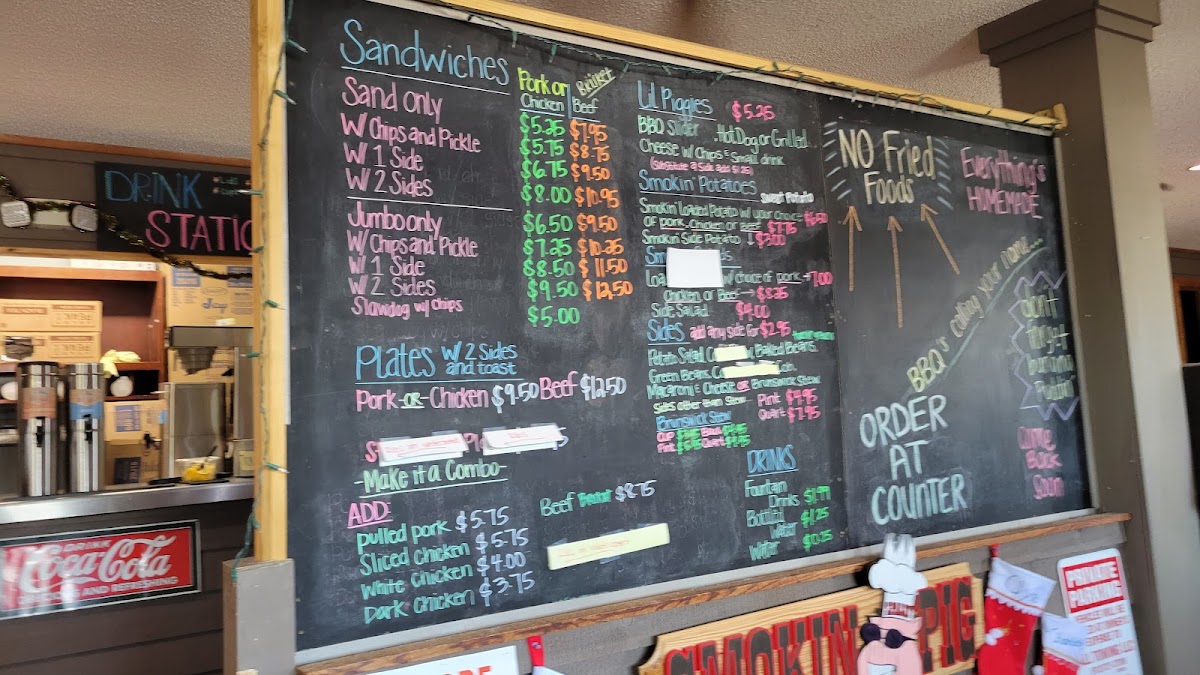 Sandwiches
Pork or Chicken
Brisket Beef
Sand only $5.25 $7.95
W/ Chips and Pickle $5.75 $8.75
W/ 1 Side $6.75 $9.50
W/ 2 Sides $8.00 $10.95
Jumbo only $6.50 $9.50
W/ Chips and Pickle $7.25 $10.25
W/ 1 Side $8.50 $11.50
W/ 2 Sides $9.50 $12.50
Slawdog w/ Chips $5.00
Plates W/ 2 Sides
and toast
Pork -or- Chicken $9.50 Beef $12.50
-Make it a Combo-
ADD:
pulled pork $5.75
Sliced Chicken $5.75
White Chicken $4.00
Dark Chicken $3.75
Beef Brisket $8.75
Lil Piggies $5.25
BBQ Slider, Hot Dog or Grilled
Cheese w/ Chips & Small drink
(Substitute a Side add $1.25)
Smokin' Potatoes Sweet Potato
Smokin' Loaded Potato w/ your choice $6.50
of pork, Chicken or Beef $7.75
Smokin Side Potato $3.00
w/ choice of pork → 7.00
Chicken or Beef → $8.25
Side Salad $4.00
Sides add any side for $2.95
Potato Salad, Baked Beans,
Green Beans,
Macaroni & Cheese or Brunswick Stew
Sides other than Stew Pint $4.95
Quart $7.95
Brunswick Stew
Cup Bowl
Pint Quart
DRINKS
Fountain
Drinks $1.99
Bottled
Water $1.25
Water $0.25
NO Fried
Foods
Everything's
HOMEMADE
BBQ's calling your name...
Don't
ORDER
AT
COUNTER
Come
Back
Soon
DRINK
STATIO
DRINK
Coca-Cola
AND REFRESHING
SMOKIN PIG
PRIVATE
PARKING